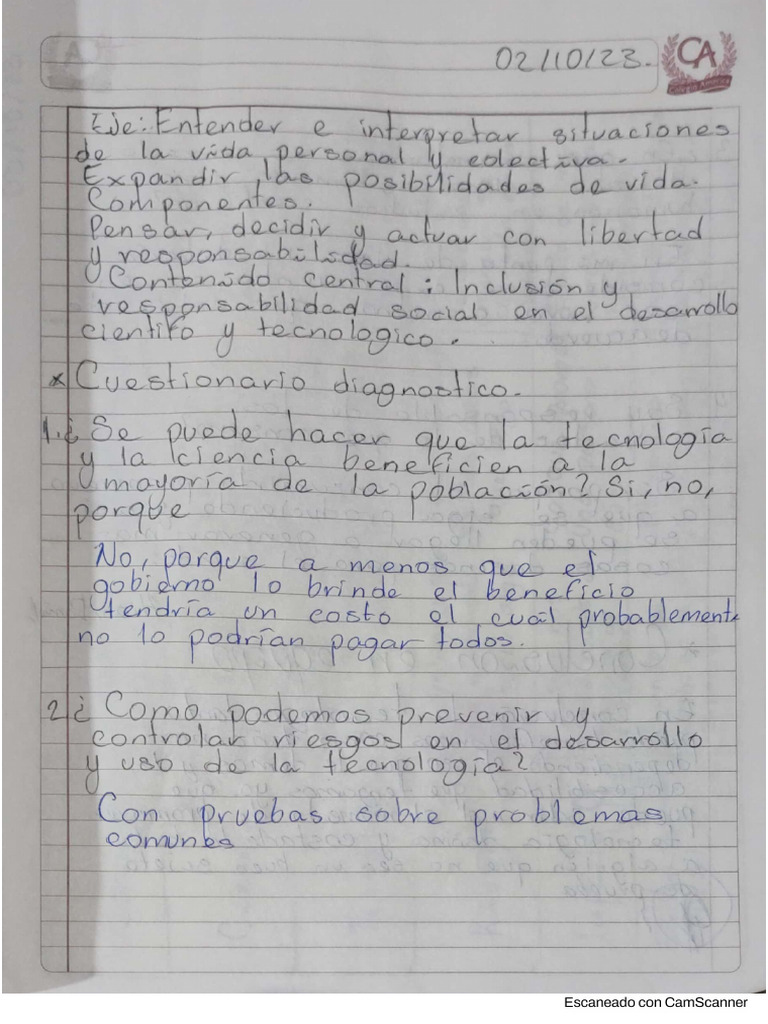 02/10/23.
CA
Eje: Entender e interpretar situaciones
de la vida personal y colectiva.
Expandir las posibilidades de vida.
Componentes.
Pensar, decidir y actuar con libertad
y responsabilidad.
Contenido central: Inclusión y
responsabilidad social en el desarrollo
cientifo y tecnologico.
* Cuestionario diagnostico.
1.¿ Se puede hacer que la tecnología
y la ciencia beneficien a la
mayoría de la población? Si, no,
porque
No, porque a menos que el
gobierno lo brinde el beneficio
tendría un costo el cual probablemente
no lo podrían pagar todos.
2¿ Como podemos prevenir y
controlar riesgos en el desarrollo
y uso de la tecnología?
Con pruebas sobre problemas
comunes
Escaneado con CamScanner